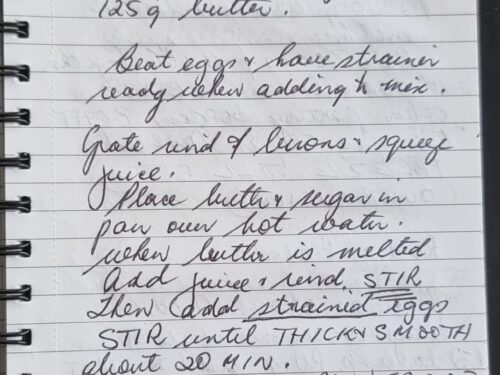 125 g butter.
Beat eggs & have strainer
ready when adding to mix.
Grate rind of lemons & squeeze
juice.
Place butter & sugar in
pan over hot water.
when butter is melted
Add juice & rind. STIR
Then add strained eggs
STIR until THICK & SMOOTH
about 20 MIN.